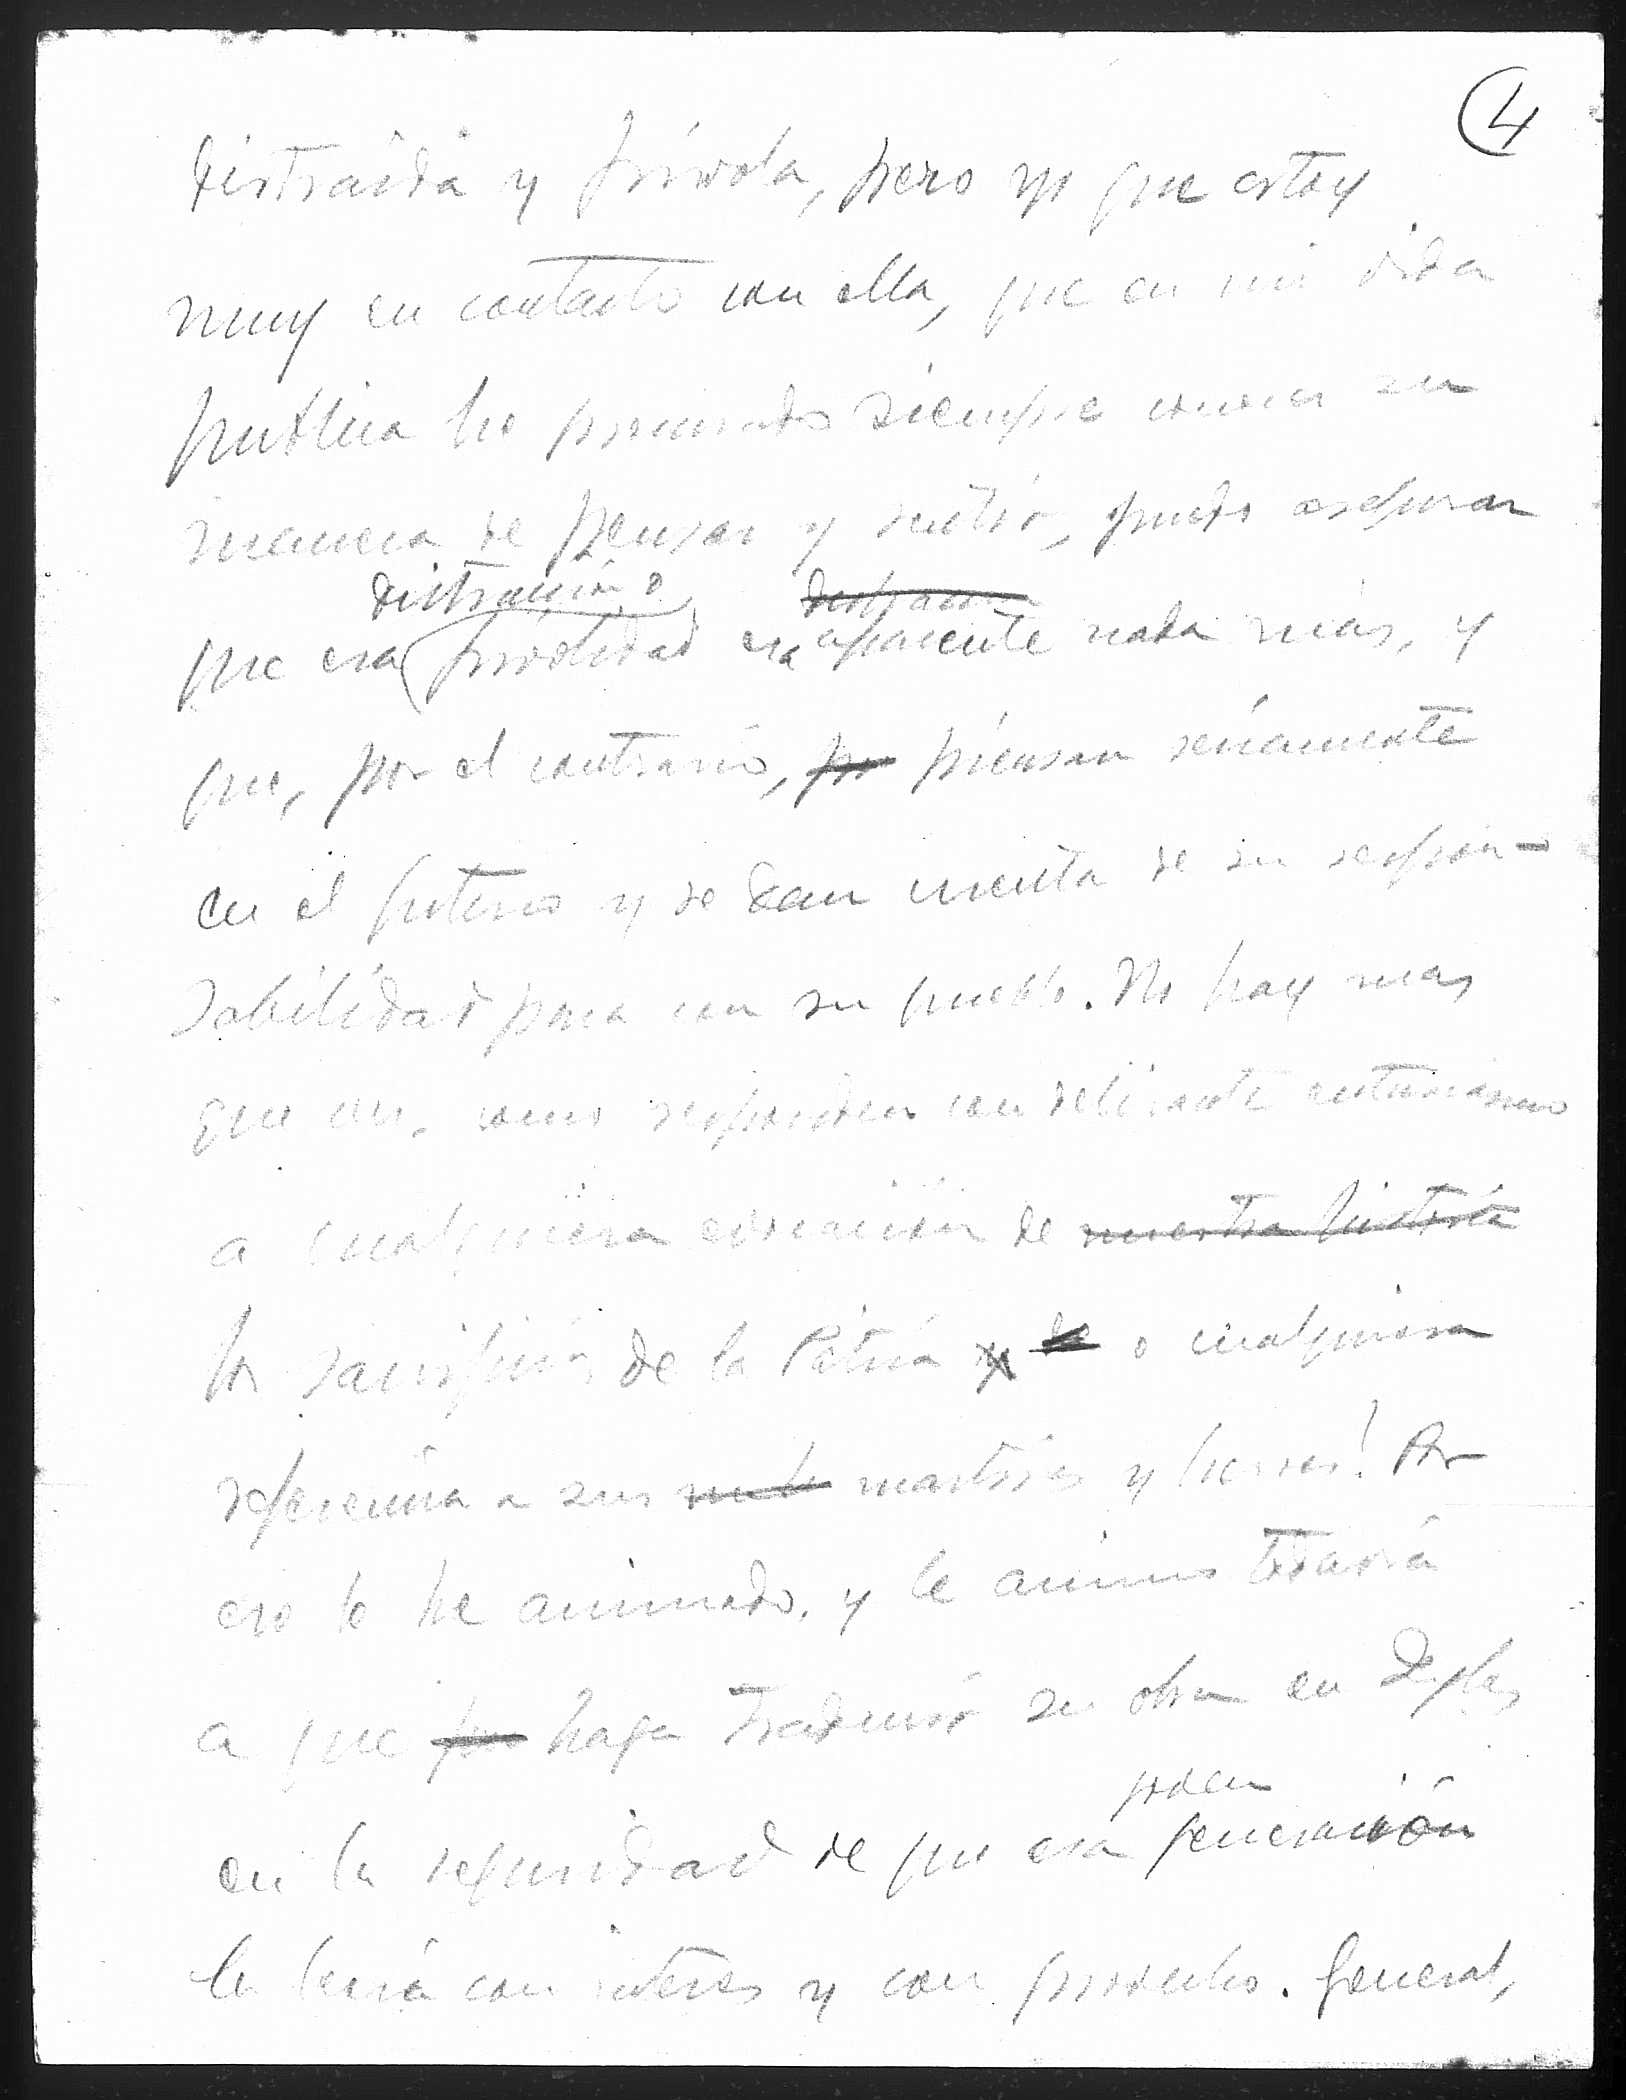 4
distraída y frívola, pero yo que estoy
muy en contacto con ella, que en mi vida
publica he procurado siempre conocer su
manera de pensar y sentir, puedo asegurar
distracción o distraccion
que esa frivolidad es aparente nada más, y
que, por el contrario, por piensan seriamente
en el futuro y se dan cuenta de su respon-
sabilidad para con su pueblo. No hay mas
que ver, como responden con delirante entusiasmo
a cualquiera evocación de nuestra historia
los sacrificios de la Patria y de o cualquiera
referencia a sus martires y heroes! Por
eso le he animado, y le animo todavía
a que haga traducir su obra en Ingles,
joven
en la seguridad de que esa generación
la leerá con interes y con provecho. General,